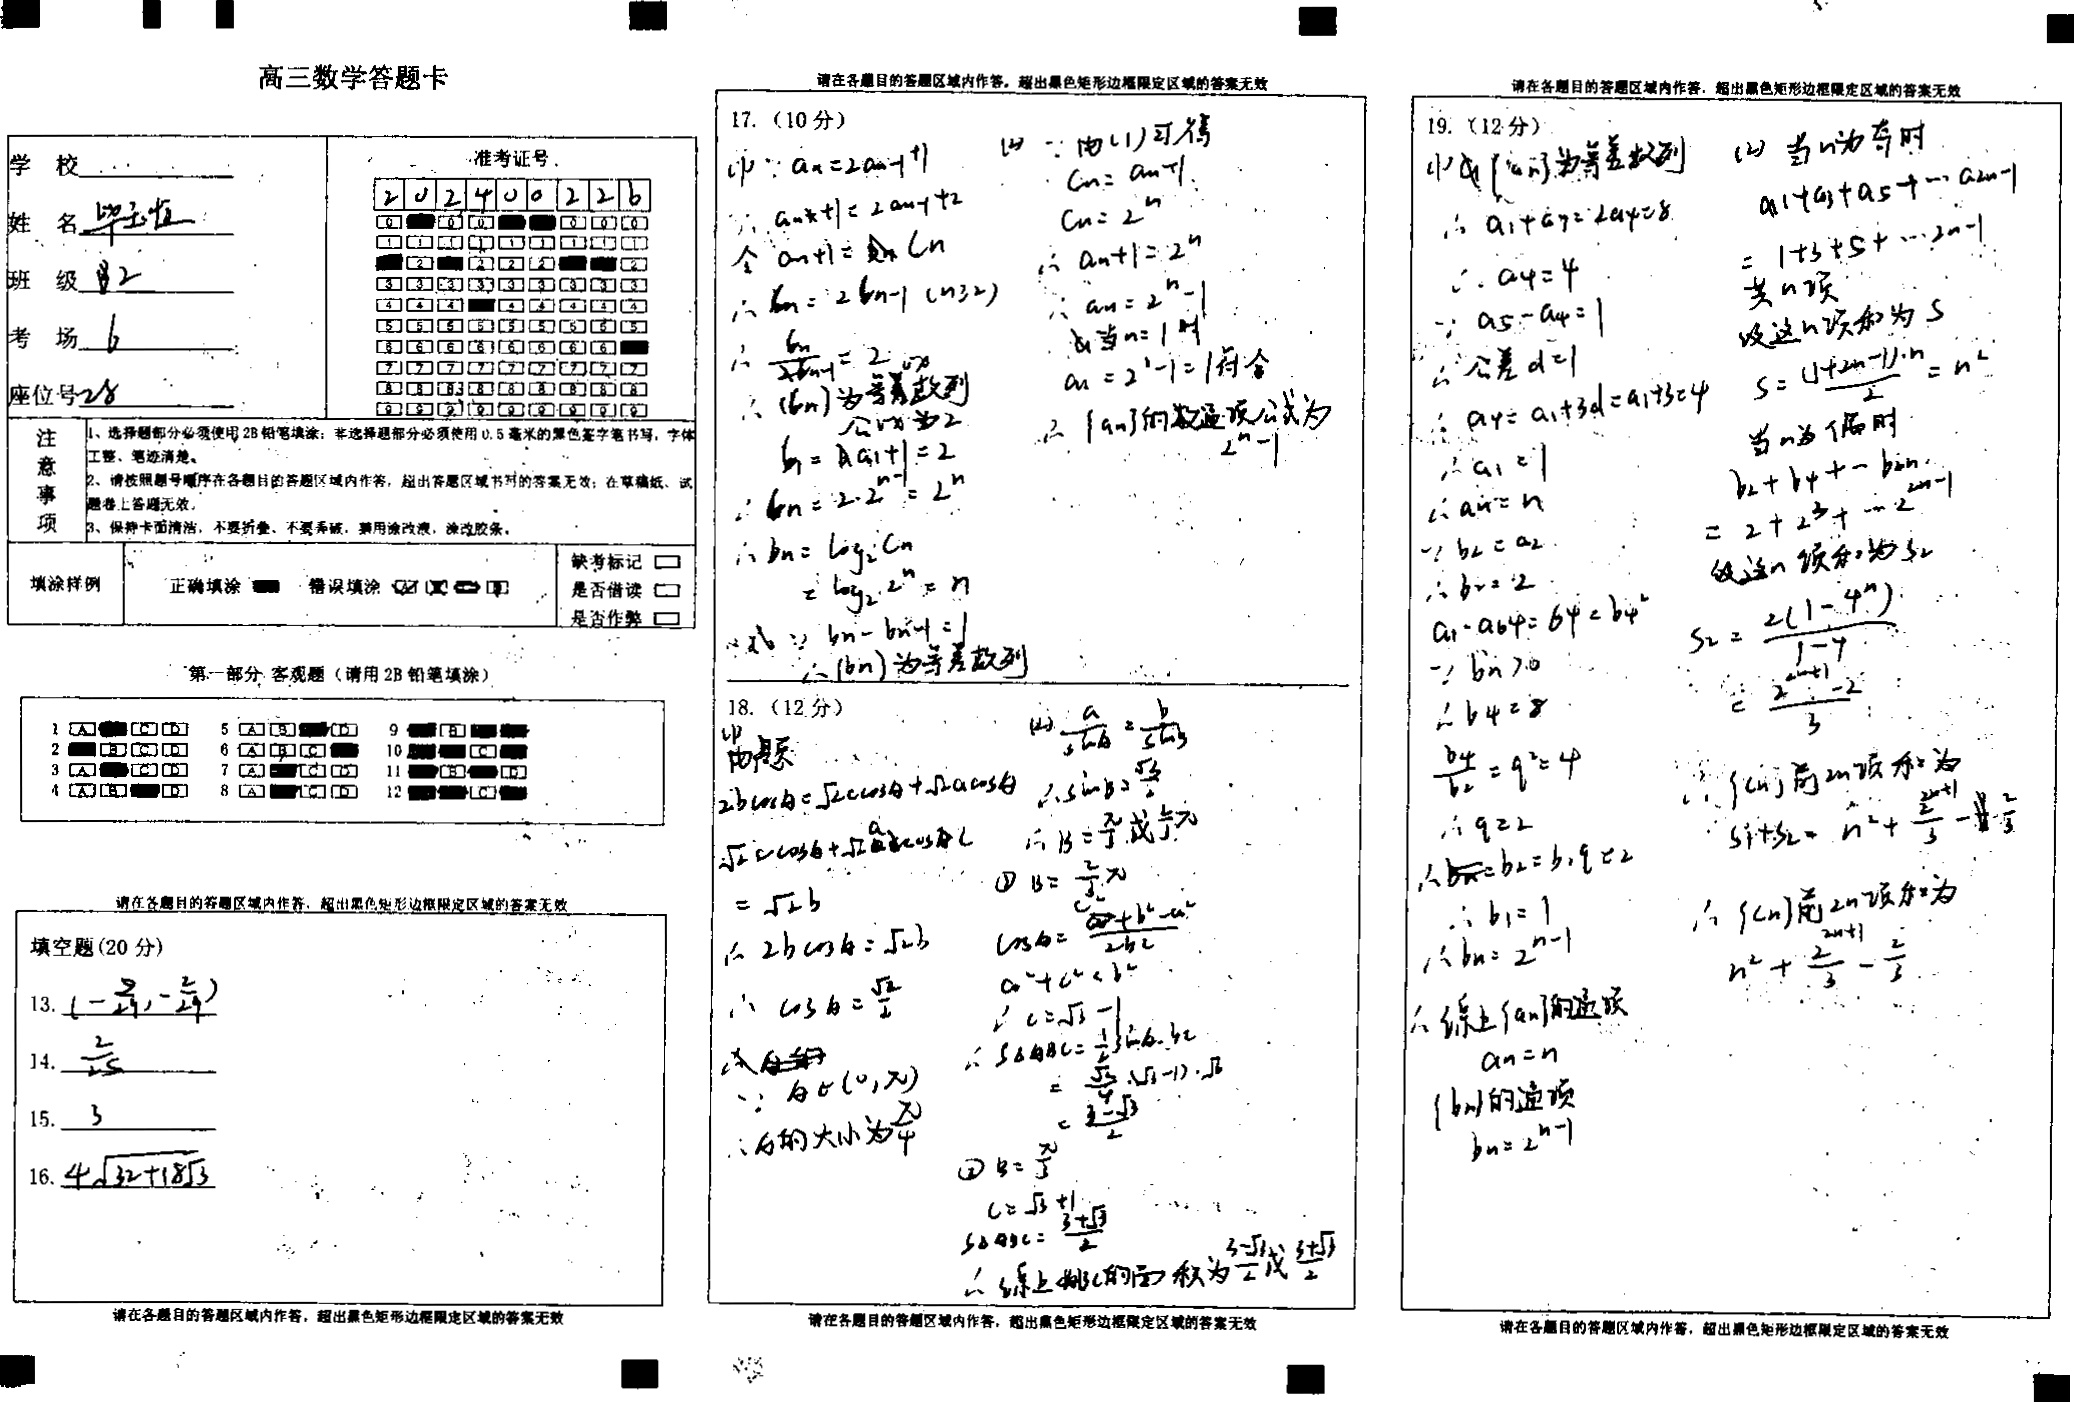 高三数学答题卡
学 校
姓 名
班 级 2
考 场 6
座位号 28
准考证号
2 0 2 4 0 0 2 2 6
注意事项
1、选择题部分必须使用2B铅笔填涂；非选择题部分必须使用0.5毫米的黑色签字笔书写，字体工整、笔迹清楚。
2、请按照题号顺序在各题目的答题区域内作答，超出答题区域书写的答案无效；在草稿纸、试题卷上答题无效。
3、保持卡面清洁，不要折叠、不要弄破，禁用涂改液，涂改胶条。
填涂样例
正确填涂
错误填涂
缺考标记
是否借读
是否作弊
第一部分 客观题（请用2B铅笔填涂）
1 A C D 5 A B D 9 B
2 B C D 6 A B C 10 C
3 A C D 7 A C D 11 B D
4 A B D 8 A C D 12 C
请在各题目的答题区域内作答，超出黑色矩形边框限定区域的答案无效
填空题(20分)
13. (-2/29, -2/29)
14. 2/25
15. 3
16. 4√32+18√3
请在各题目的答题区域内作答，超出黑色矩形边框限定区域的答案无效
请在各题目的答题区域内作答，超出黑色矩形边框限定区域的答案无效
17.（10分）
(1) ∵ an=2an-1+1
∴ an+1=2an-1+2
令 an+1=Cn
∴ bn=2bn-1 (n≥2)
∴ bn/bn-1=2
∴ {bn}为等比数列
公比为2
b1=a1+1=2
∴ bn=2·2^(n-1)=2^n
∴ bn=log₂Cn
=log₂2^n=n
∵ bn-bn-1=1
∴ {bn}为等差数列
(2) ∵ 由(1)可得
Cn=an+1
Cn=2^n
∴ an+1=2^n
∴ an=2^n-1
当n=1时
a1=2^1-1=1符合
∴ {an}的通项公式为
2^n-1
18.（12分）
(1)
由题
2bcosA=√2ccosA+√2acosA
√2ccosA+√2acosC
=√2b
∴ 2bcosA=√2b
∴ cosA=√2/2
∵ A∈(0,π)
∴ A的大小为π/4
(2) a/sinA=b/sinB
∴ sinB=√3/2
∴ B=π/3或2/3π
① B=2/3π
cosA=(c²+b²-a²)/2bc
a²+c²<b²
∴ c=√3-1
∴ S△ABC=1/2sinA·bc
=√2/4·(√3-1)·√6
=(3-√3)/2
② B=π/3
c=√3+1
S△ABC=(3+√3)/2
∴ 综上ABC的面积为(3-√3)/2或(3+√3)/2
请在各题目的答题区域内作答，超出黑色矩形边框限定区域的答案无效
请在各题目的答题区域内作答，超出黑色矩形边框限定区域的答案无效
19.（12分）
(1) {an}为等差数列
∴ a1+a7=2a4=8
∴ a4=4
∵ a5-a4=1
∴ 公差d=1
∴ a4=a1+3d=a1+3=4
∴ a1=1
∴ an=n
∵ b2=a2
∴ b2=2
a1·a64=64=b4²
∵ bn>0
∴ b4=8
b4/b2=q²=4
∴ q=2
∴ b2=b1q=2
∴ b1=1
∴ bn=2^(n-1)
∴ 综上{an}的通项
an=n
{bn}的通项
bn=2^(n-1)
(2) 当n为奇时
a1+a3+a5+…a2n-1
=1+3+5+…2n-1
共n项
设这n项和为S
S=(1+2n-1)·n/2=n²
当n为偶时
b2+b4+…b2n
=2+2³+…2^(2n-1)
设这n项和为S2
S2=2(1-4^n)/(1-4)
=(2^(2n+1)-2)/3
∴ {Cn}前2n项和为
S1+S2=n²+2^(2n+1)/3-2/3
∴ {Cn}前2n项和为
n²+2^(2n+1)/3-2/3
请在各题目的答题区域内作答，超出黑色矩形边框限定区域的答案无效